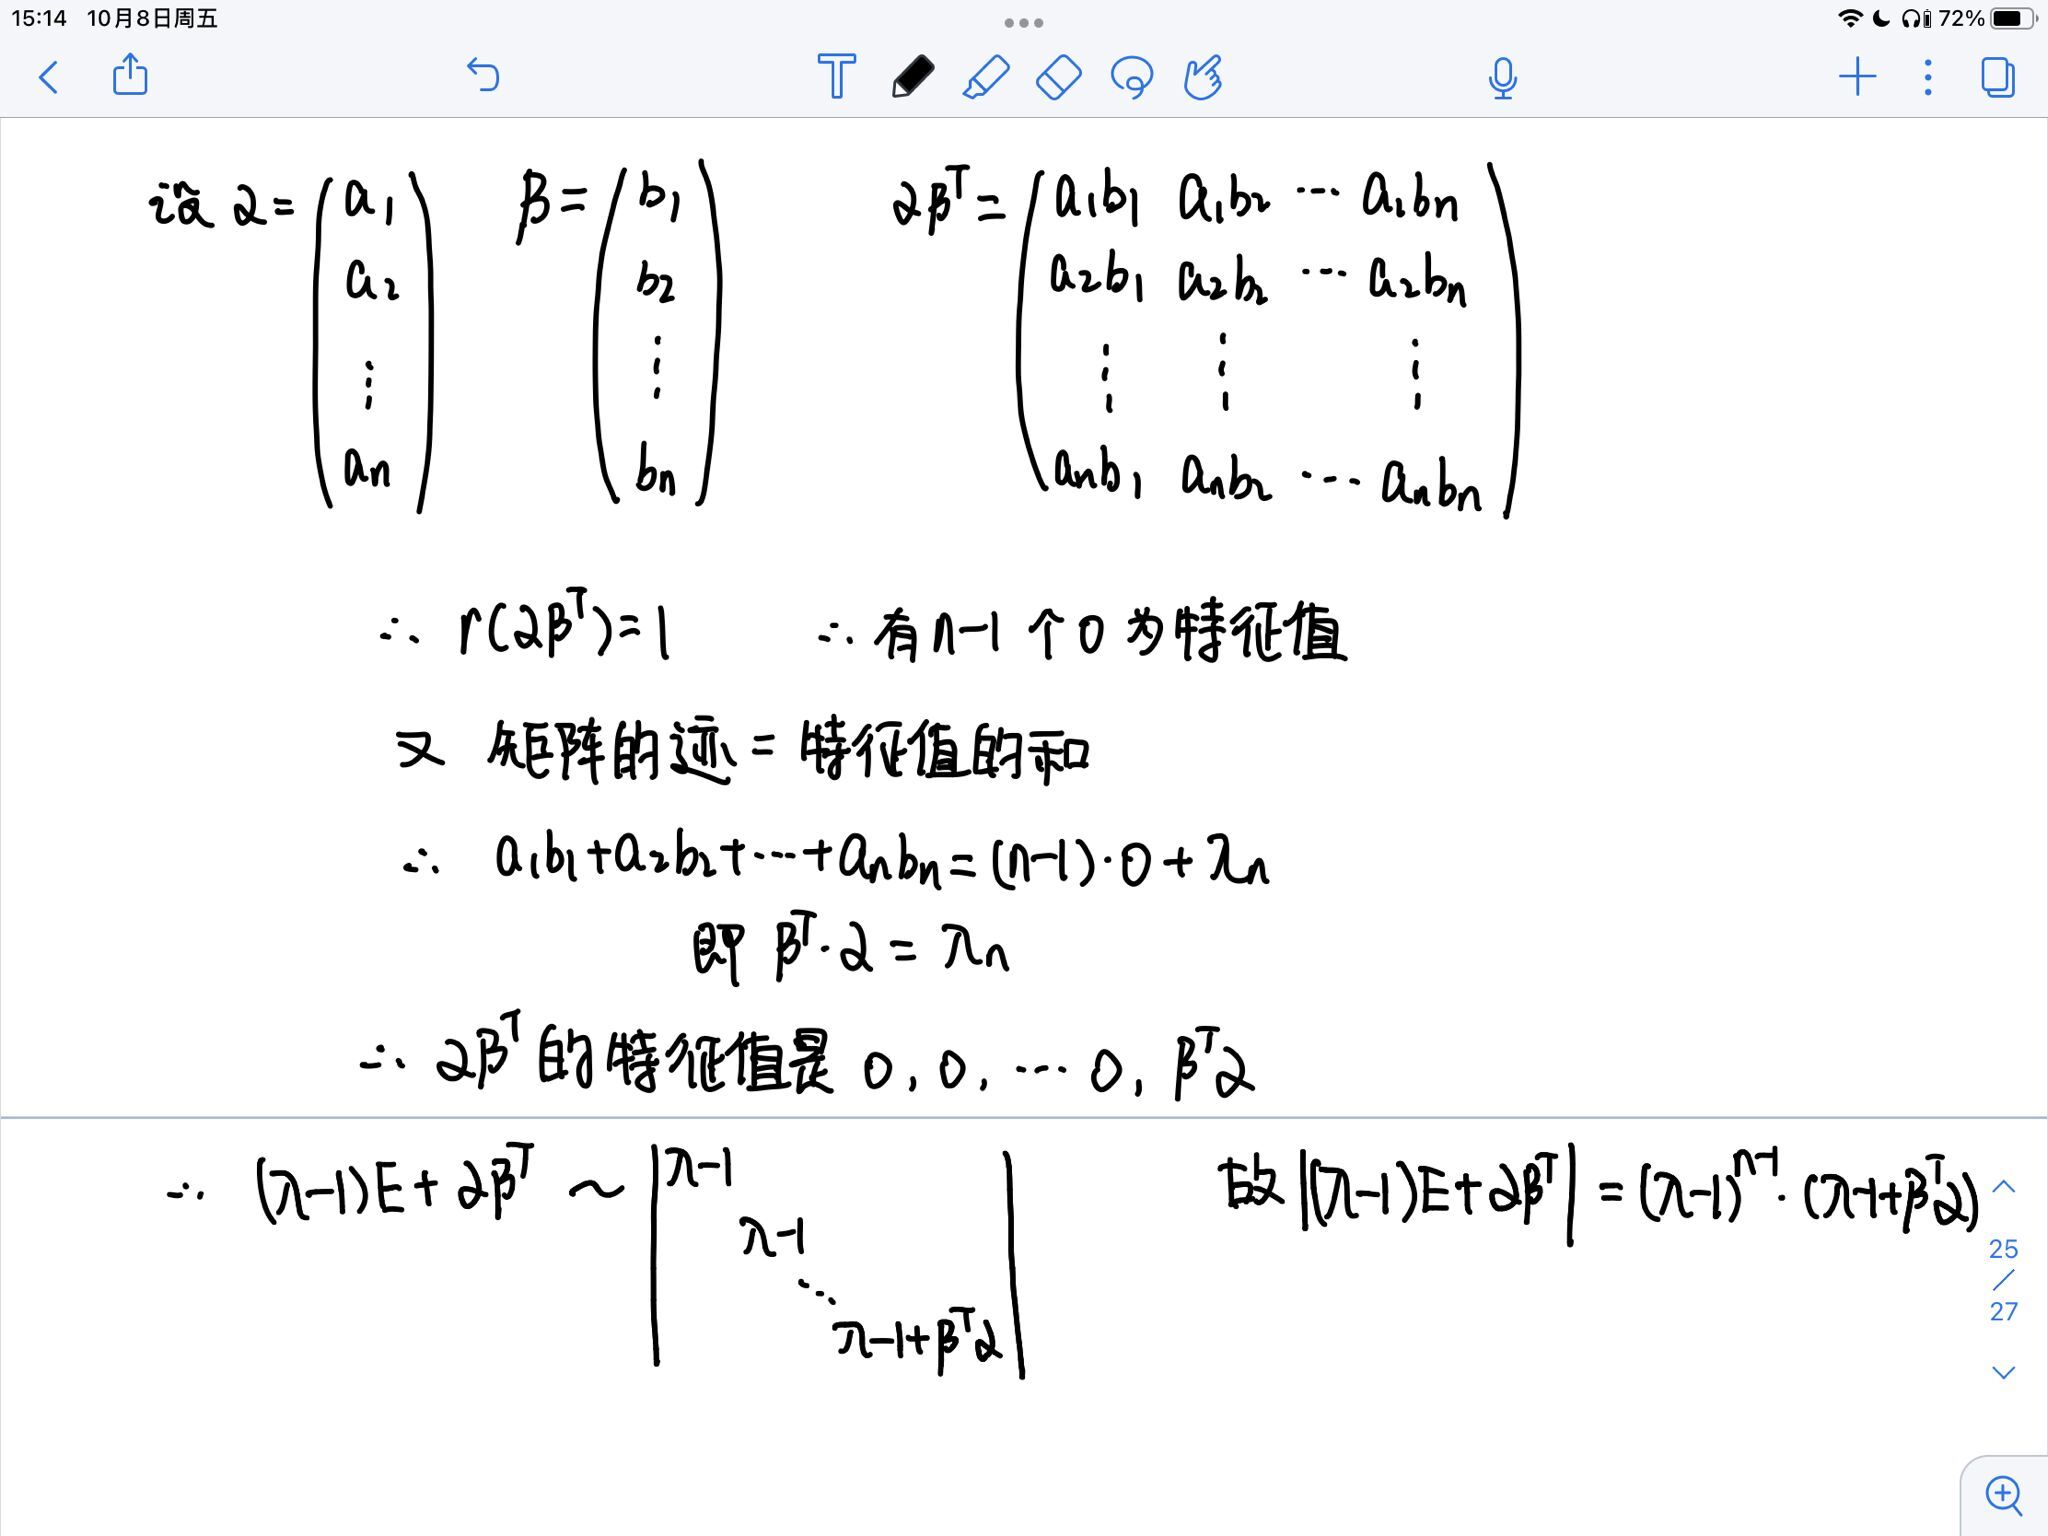 15:14 10月8日周五 72%
设 α = (a₁ a₂ ⋮ aₙ) β = (b₁ b₂ ⋮ bₙ) αβᵀ = (a₁b₁ a₁b₂ ⋯ a₁bₙ
a₂b₁ a₂b₂ ⋯ a₂bₙ
⋮ ⋮ ⋮
aₙb₁ aₙb₂ ⋯ aₙbₙ)
∴ r(αβᵀ)=1 ∴ 有n-1个0为特征值
又 矩阵的迹 = 特征值的和
∴ a₁b₁+a₂b₂+⋯+aₙbₙ=(n-1)·0+λₙ
即 βᵀ·α = λₙ
∴ αβᵀ的特征值是 0, 0, ⋯ 0, βᵀα
∴ (λ-1)E+αβᵀ ~ |λ-1 故|(λ-1)E+αβᵀ| = (λ-1)ⁿ⁻¹·(λ-1+βᵀα)
λ-1
⋱
λ-1+βᵀα|
25
/
27